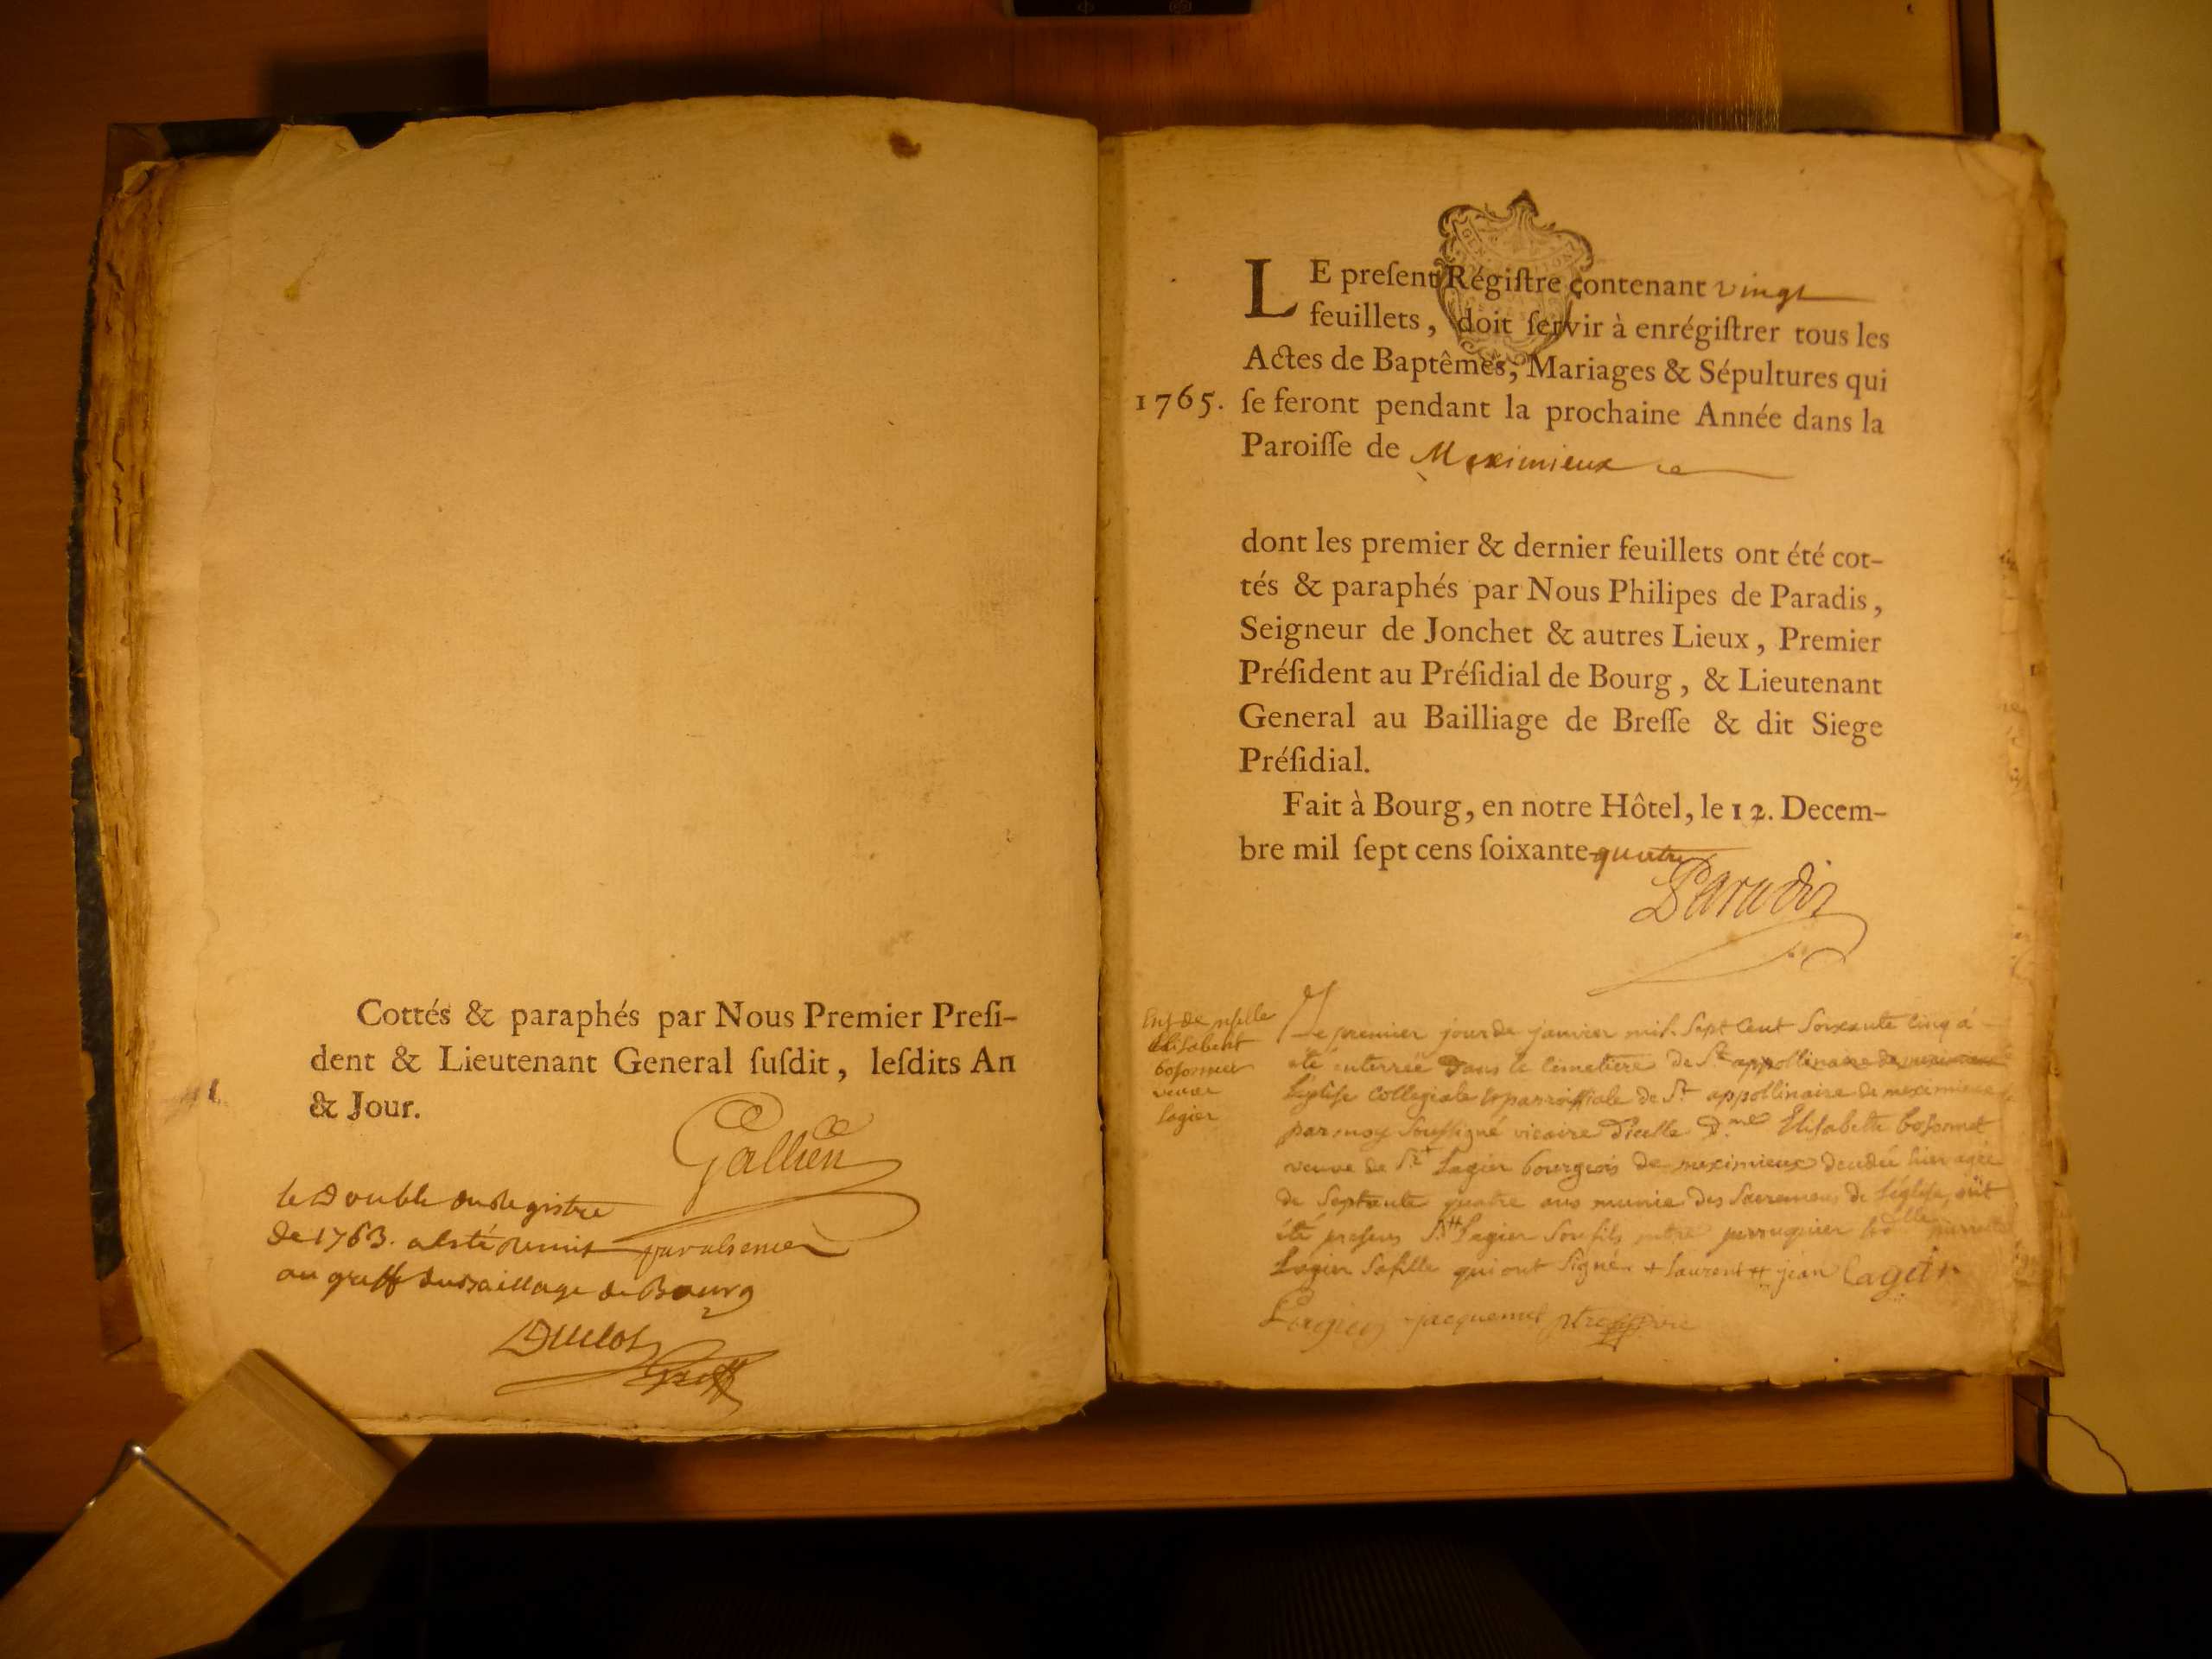 Cottés & paraphés par Nous Premier Preſi-
dent & Lieutenant General ſuſdit, leſdits An
& Jour.
Gallien
le Double du Registre
de 1763. a esté remis
au greffe du Baillage de Bourg
Duclos
Greff
LE preſent Régiſtre contenant vingt
feuillets, doit ſervir à enrégiſtrer tous les
Actes de Baptêmes, Mariages & Sépultures qui
1765. ſe feront pendant la prochaine Année dans la
Paroiſſe de Meximieux
dont les premier & dernier feuillets ont été cot-
tés & paraphés par Nous Philipes de Paradis,
Seigneur de Jonchet & autres Lieux, Premier
Préſident au Préſidial de Bourg, & Lieutenant
General au Bailliage de Breſſe & dit Siege
Préſidial.
Fait à Bourg, en notre Hôtel, le 12. Decem-
bre mil ſept cens ſoixante quatre
Paradis
Elisabeht
bosonnet
veuve
Lagier
Le premier jour de janvier mil Sept Cent Soixante Cinq à
été enterrée Dans le Cimetiere de St appollinaire de meximieux
L'église Collegiale & parroissiale de St appollinaire de meximieux
par moy Soussigné vicaire D'icelle Dme Elisabeth bosonnet
veuve de Sr + Lagier bourgeois de meximieux decedée hier agée
de Septante quatre ans munie Des Sacremens de L'église, ont
été presens Sr ++ Lagier Son fils perruquier
Lagier Sa fille qui ont Signé. + Laurent ++ jean Lagier
Lagier jacquemet ptre vire